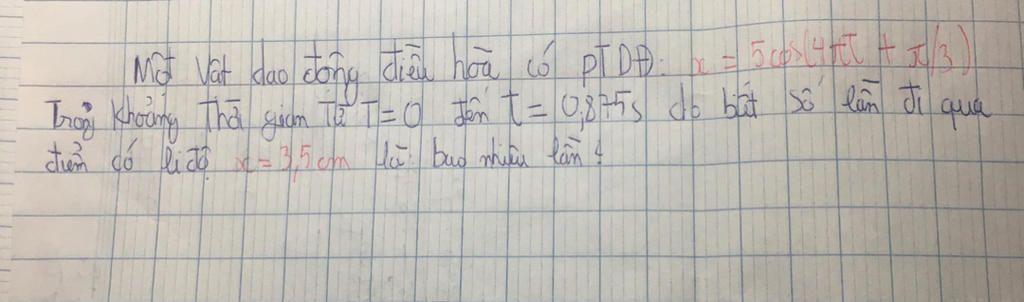 Một vật dao động điều hoà có PTDĐ: x = 5cos(4πt + π/3)
Trong khoảng thời gian từ t=0 đến t = 0,875s do bất số lần đi qua
điểm có li độ x = 3,5cm là bao nhiêu lần?